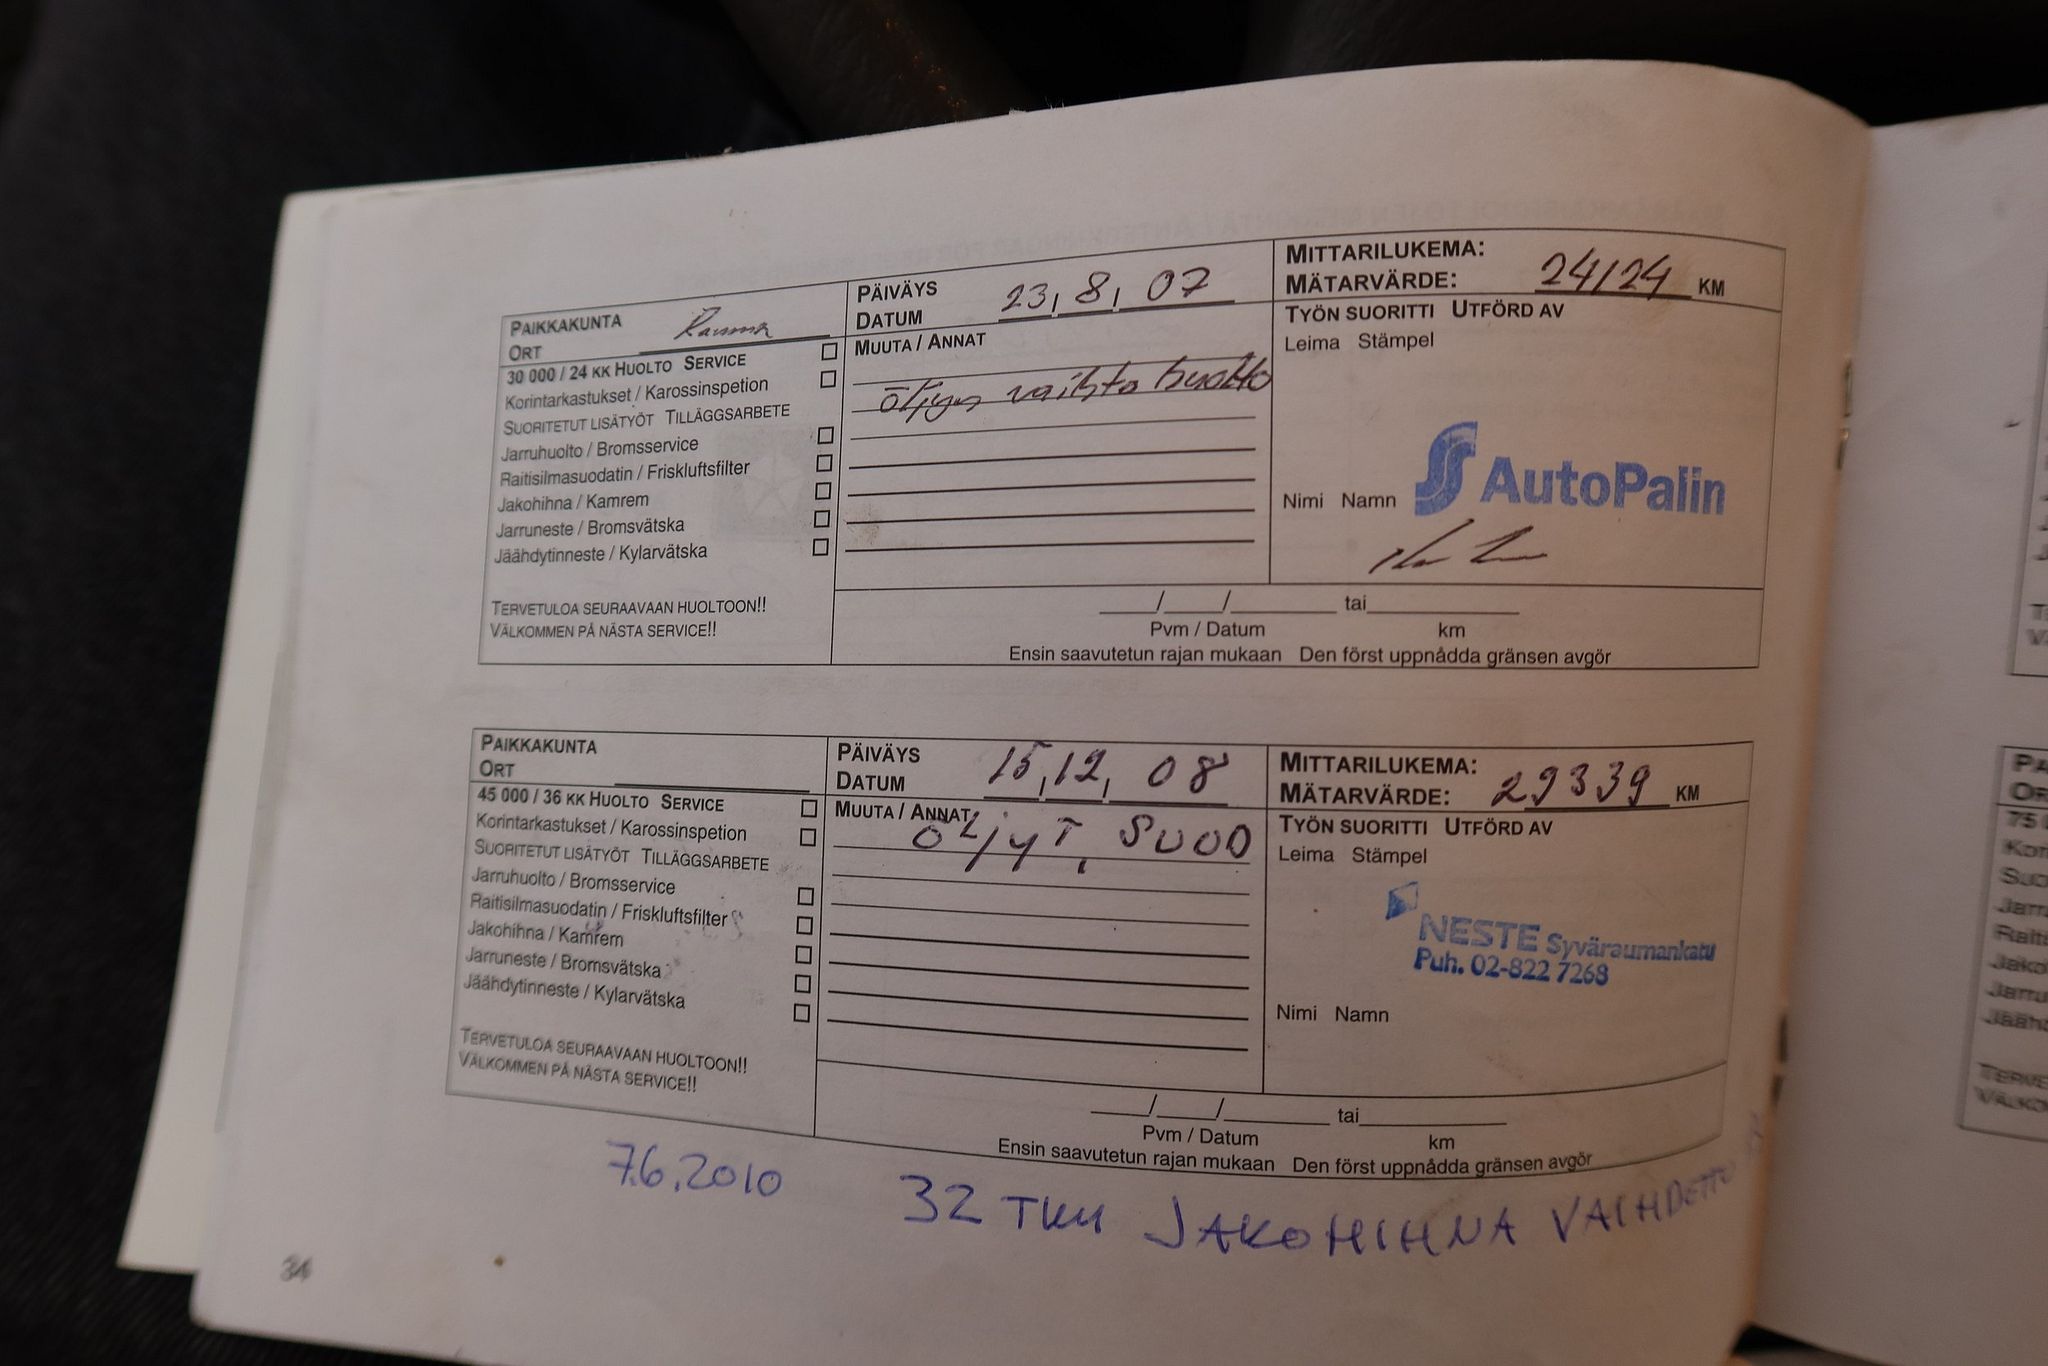 PAIKKAKUNTA
ORT Rauma
PÄIVÄYS
DATUM 23, 8, 07
MITTARILUKEMA:
MÄTARVÄRDE: 24124 KM
30 000 / 24 KK HUOLTO SERVICE
Korintarkastukset / Karossinspetion
SUORITETUT LISÄTYÖT TILLÄGGSARBETE
Jarruhuolto / Bromsservice
Raitisilmasuodatin / Friskluftsfilter
Jakohihna / Kamrem
Jarruneste / Bromsvätska
Jäähdytinneste / Kylarvätska
MUUTA / ANNAT
öljyn vaihto huolto
TYÖN SUORITTI UTFÖRD AV
Leima Stämpel
AutoPalin
Nimi Namn
TERVETULOA SEURAAVAAN HUOLTOON!!
VÄLKOMMEN PÅ NÄSTA SERVICE!!
___/___/______ tai________
Pvm / Datum km
Ensin saavutetun rajan mukaan Den först uppnådda gränsen avgör
PAIKKAKUNTA
ORT
PÄIVÄYS
DATUM 15, 12, 08
MITTARILUKEMA:
MÄTARVÄRDE: 29339 KM
45 000 / 36 KK HUOLTO SERVICE
Korintarkastukset / Karossinspetion
SUORITETUT LISÄTYÖT TILLÄGGSARBETE
Jarruhuolto / Bromsservice
Raitisilmasuodatin / Friskluftsfilter
Jakohihna / Kamrem
Jarruneste / Bromsvätska
Jäähdytinneste / Kylarvätska
MUUTA / ANNAT
öLjyT, SUOD
TYÖN SUORITTI UTFÖRD AV
Leima Stämpel
NESTE Syväraumankatu
Puh. 02-822 7268
Nimi Namn
TERVETULOA SEURAAVAAN HUOLTOON!!
VÄLKOMMEN PÅ NÄSTA SERVICE!!
___/___/______ tai________
Pvm / Datum km
Ensin saavutetun rajan mukaan Den först uppnådda gränsen avgör
7.6.2010 32 TKM JAKOHIHNA VAIHDETTU
34